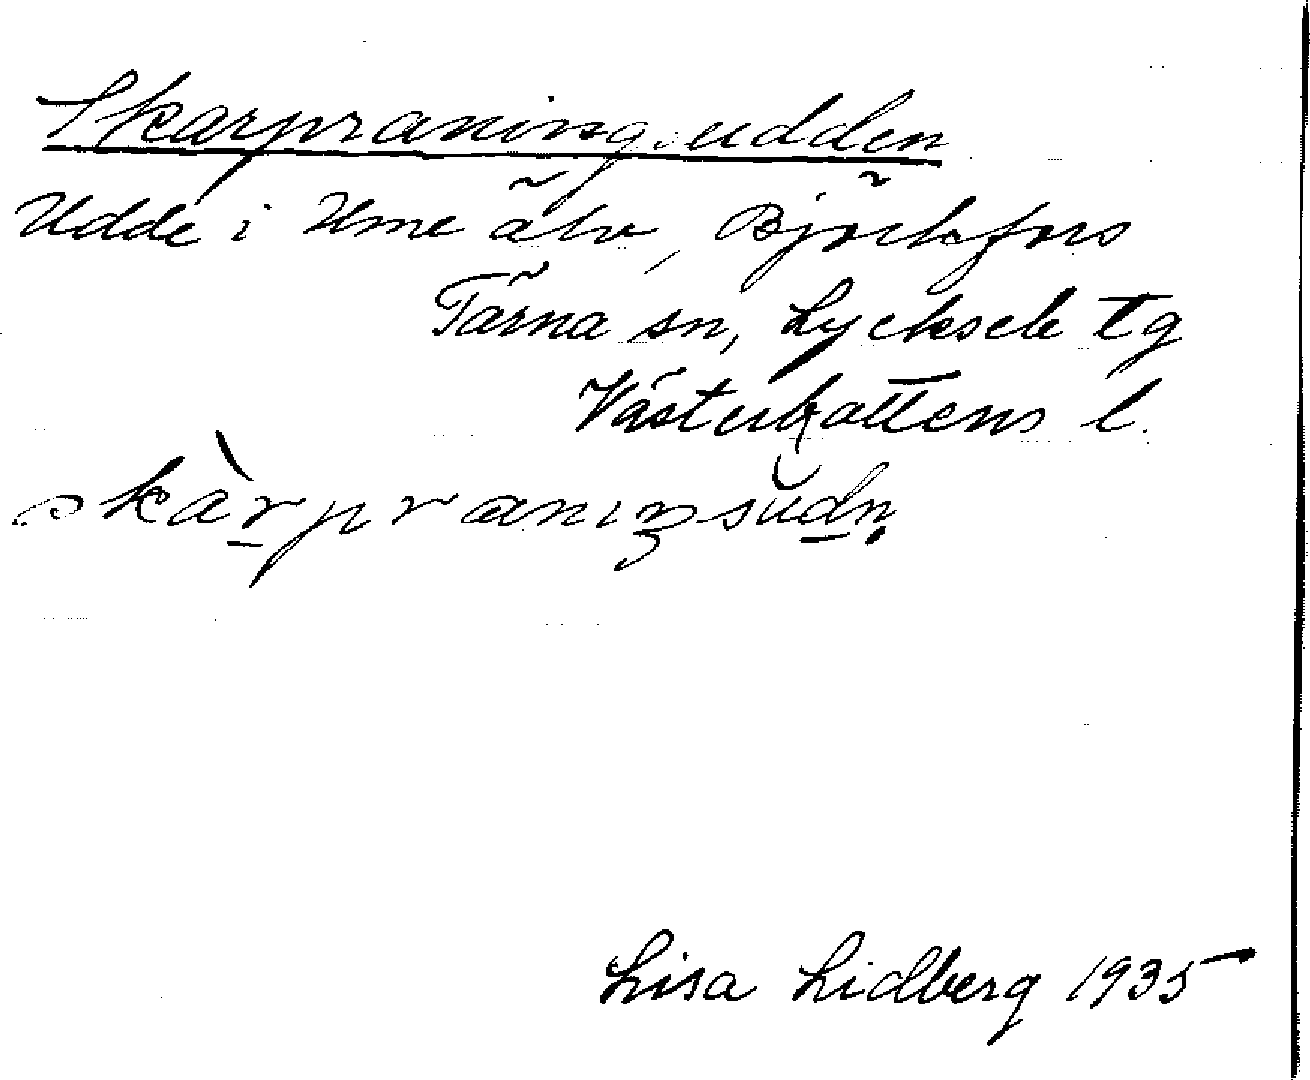 Skarpraningsudden
Udde i Ume älv, Björkfors
Tärna sn, Lycksele tg
Västerbottens l.
skàrpraniŋsudn̥
Lisa Lidberg 1935